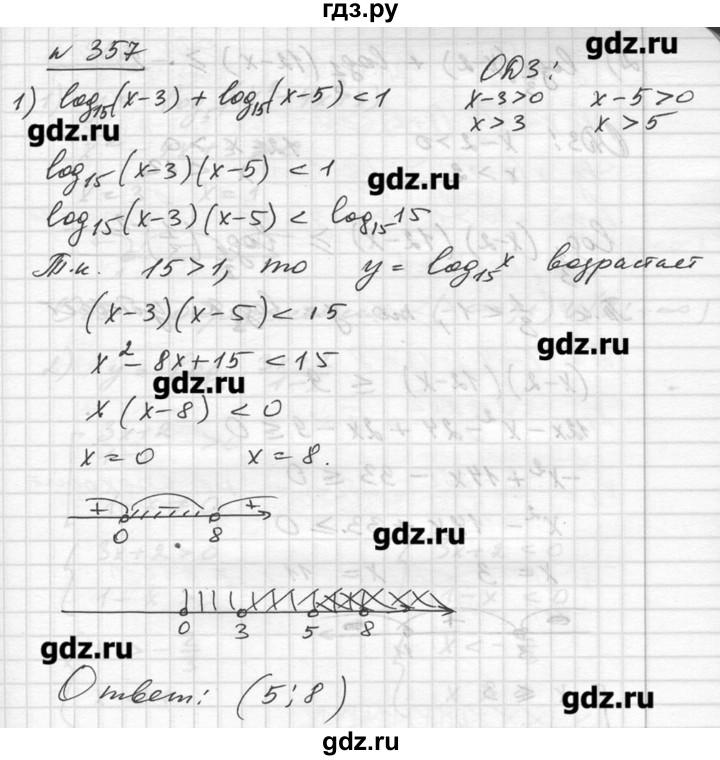 гдз.ру
№ 357
gdz.ru
1) log₁₅(x-3) + log₁₅(x-5) < 1
ОДЗ:
x-3>0 x-5>0
x>3 x>5
gdz.ru
log₁₅(x-3)(x-5) < 1
gdz.ru
log₁₅(x-3)(x-5) < log₁₅15
Т.к. 15>1, то y = log₁₅x возрастает
(x-3)(x-5) < 15
gdz.ru
x² - 8x + 15 < 15
gdz.ru
x(x-8) < 0
x=0 x=8.
+ - +
0 8
gdz.ru
0 3 5 8
gdz.ru
Ответ: (5;8)
gdz.ru
gdz.ru